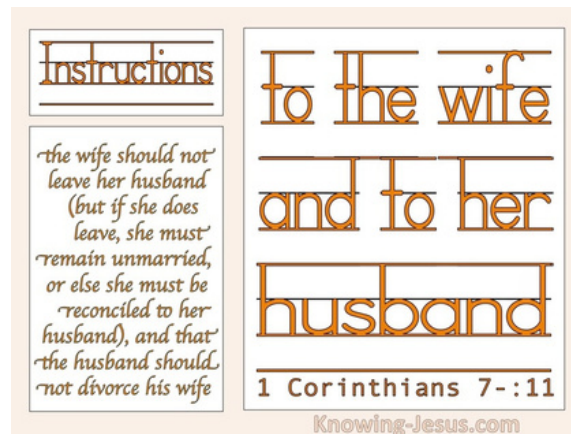 Instructions
the wife should not
leave her husband
(but if she does
leave, she must
remain unmarried,
or else she must be
reconciled to her
husband), and that
the husband should
not divorce his wife
to the wife
and to her
husband
1 Corinthians 7-:11
Knowing-Jesus.com